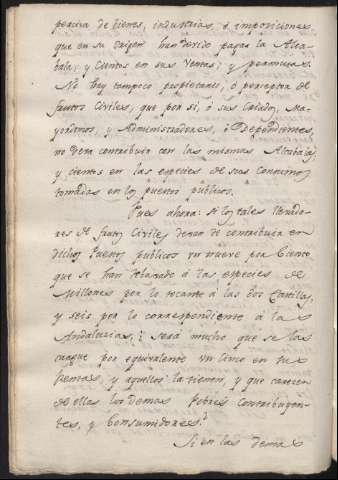 de bienes, industrias, ó imposiciones
que en su origen han devido pagar la Alca-
bala, y Cientos en sus Ventas, y permutas.
No hay tampoco propietario, ó perceptor de
frutos Civiles, que por sí, ó sus Criados, Ma-
yordomos, y Administradores, ó Dependientes,
no contribuia con las mismas Alcabalas,
y cientos en las especies de sus consumos
tomadas en los puestos publicos.
Pues ahora: si los tales
de frutos Civiles de contribuir en
dichos Puestos publicos un nueve por Ciento
que se han á las especies de
Millones por lo tocante á las dos Castillas,
y seis por lo correspondiente á las
Andalucias; será mucho que se les
cargue por equivalente un Cinco en sus
Rentas, y aquellos la tienen, y que carecen
de ellas los demas Pobres Contribuyen-
tes, y Consumidores?
Si en las demas